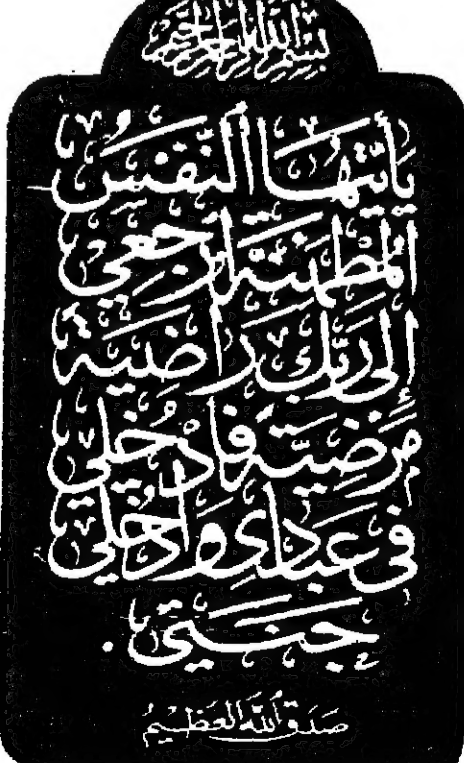 بِسْمِ اللَّهِ الرَّحْمَٰنِ الرَّحِيمِ
يَا أَيَّتُهَا النَّفْسُ
الْمُطْمَئِنَّةُ ارْجِعِي
إِلَى رَبِّكِ رَاضِيَةً
مَرْضِيَّةً فَادْخُلِي
فِي عِبَادِي وَادْخُلِي
جَنَّتِي.
صَدَقَ اللَّهُ الْعَظِيمُ